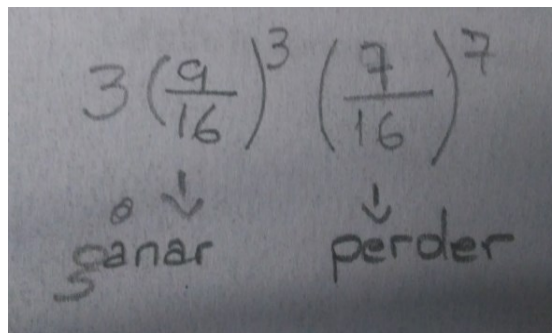 3 (9/16)^3 (7/16)^7
↓ ↓
ganar perder